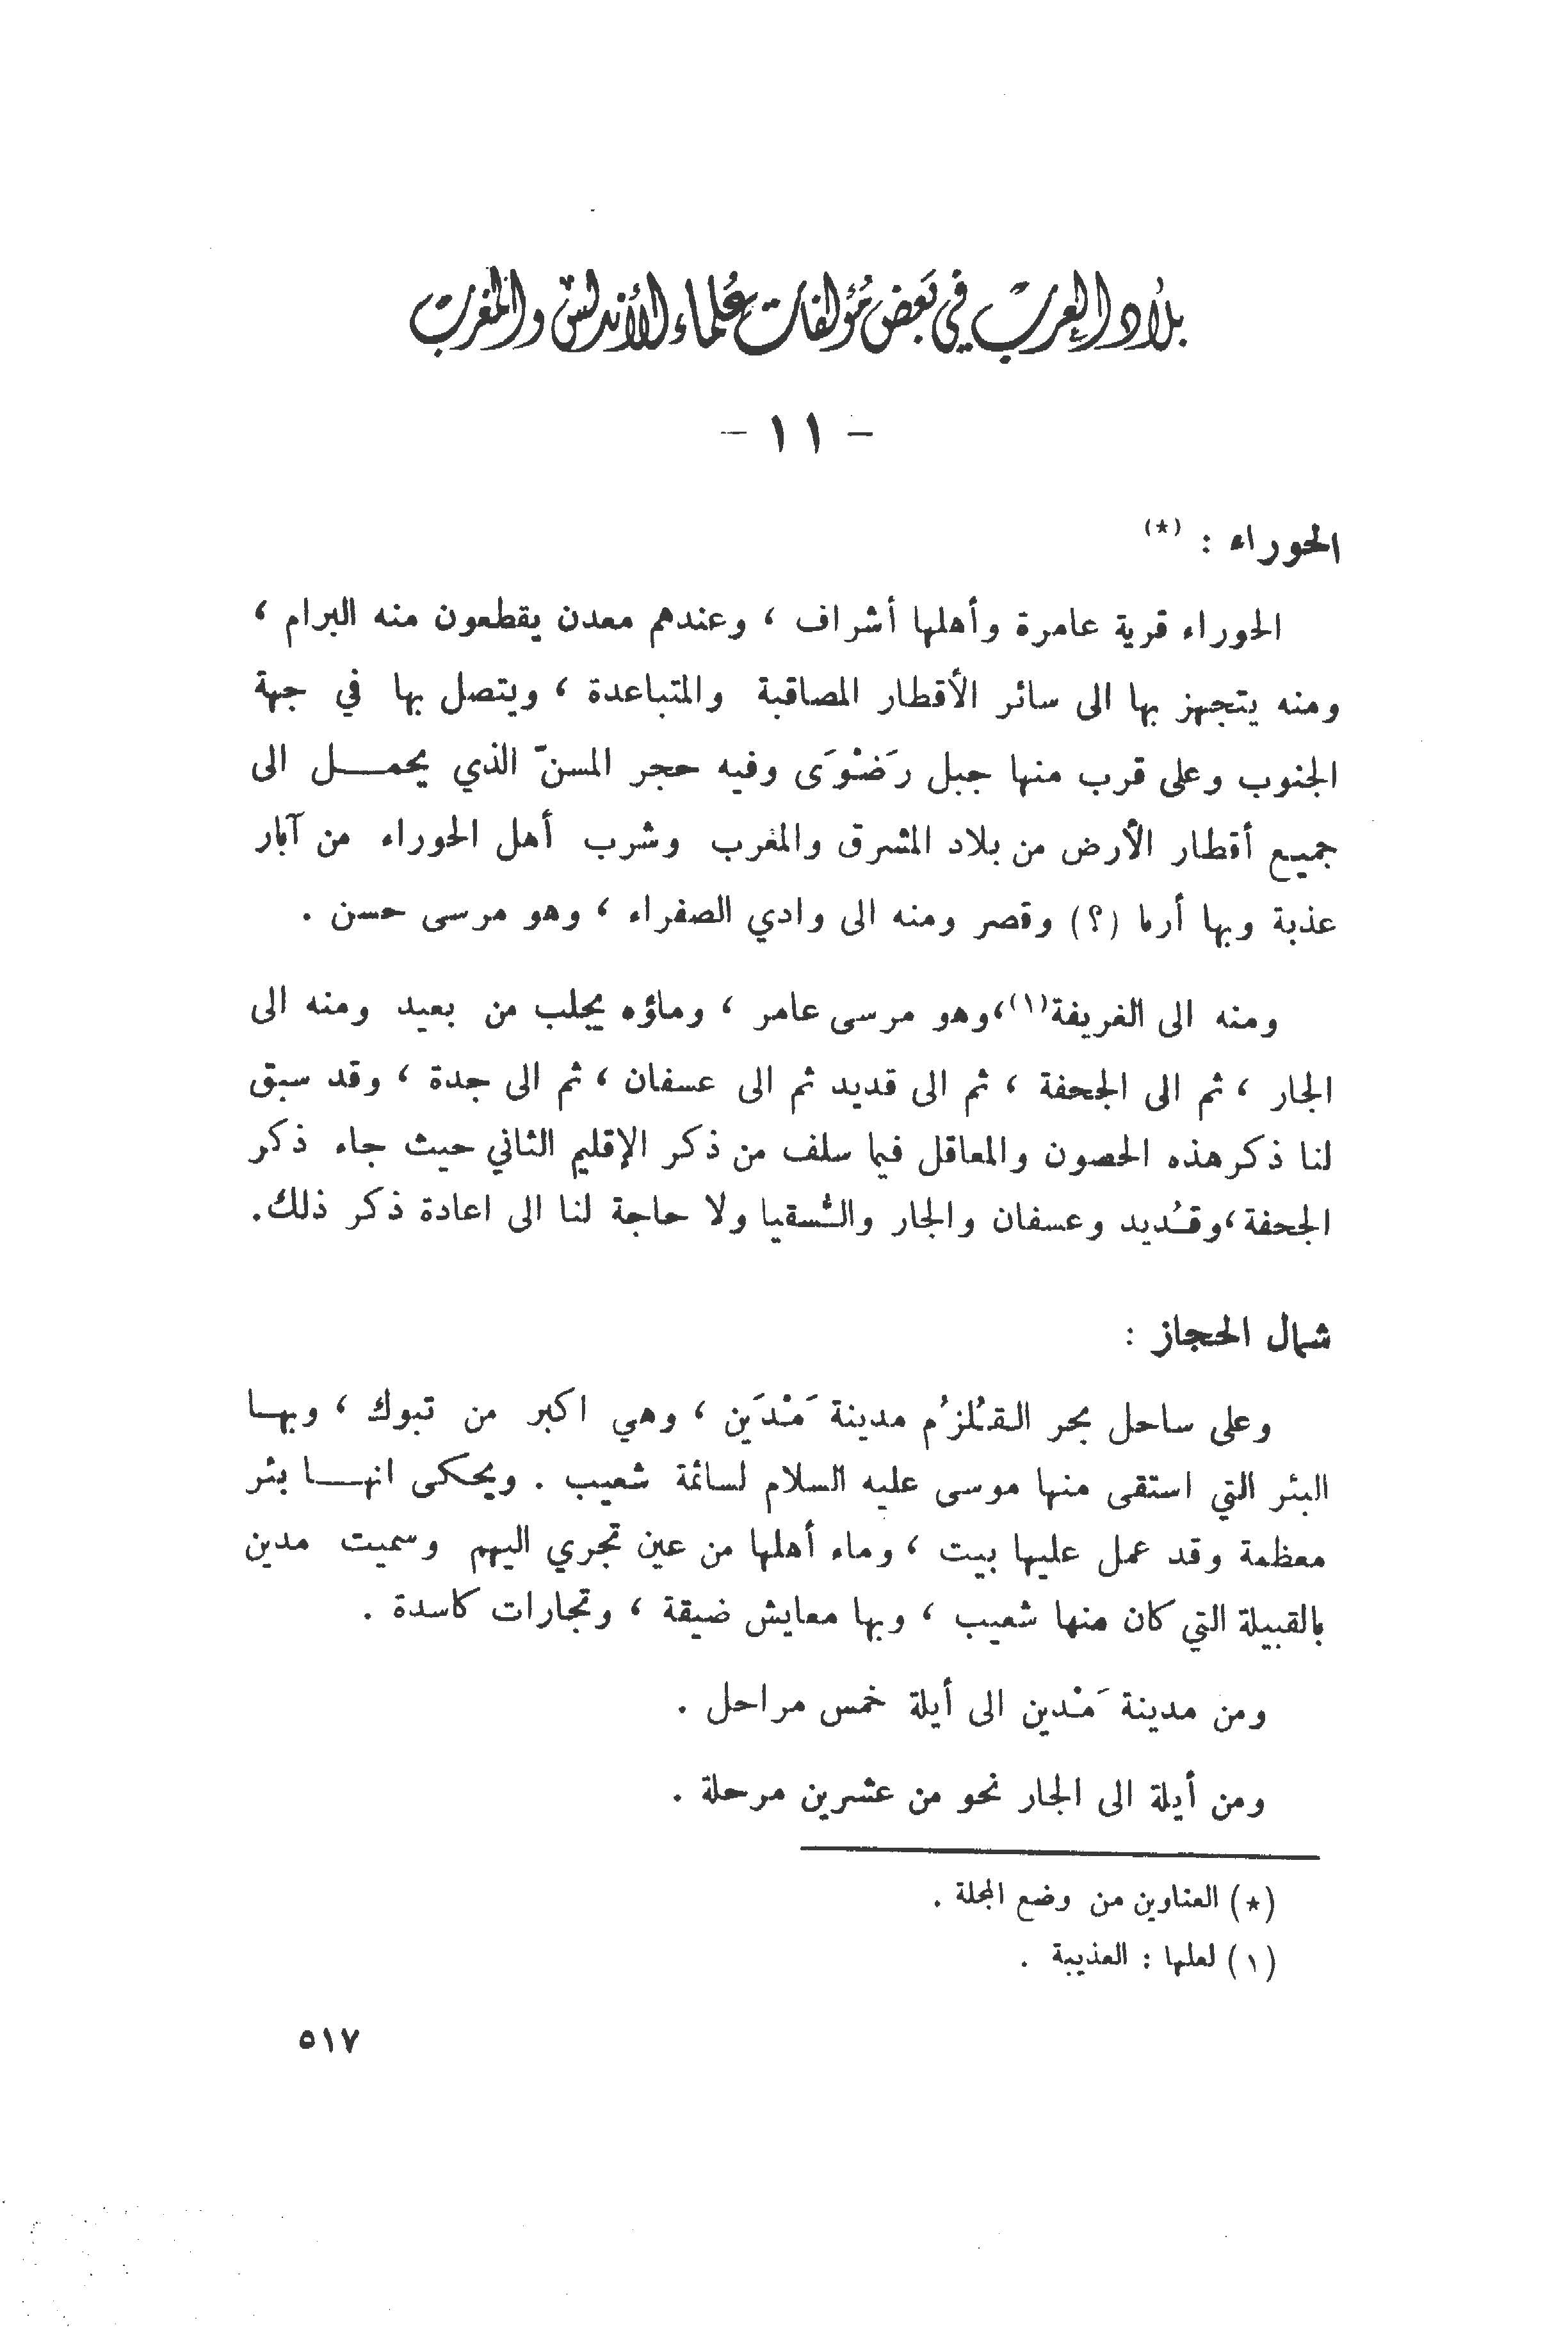 بلاد العرب في بعض مؤلفات علماء الأندلس والمغرب
- ١١ -
الحوراء : (*)
الحوراء قرية عامرة وأهلها أشراف ، وعندهم معدن يقطعون منه البرام ،
ومنه يتجهز بها الى سائر الأقطار المصاقبة والمتباعدة ، ويتصل بها في جهة
الجنوب وعلى قرب منها جبل رَضْوَى وفيه حجر المسنّ الذي يحمـــل الى
جميع أقطار الأرض من بلاد المشرق والمغرب وشرب أهل الحوراء من آبار
عذبة وبها أرما (؟) وقصر ومنه الى وادي الصفراء ، وهو مرسى حسن .
ومنه الى الغريفة(١)،وهو مرسى عامر ، وماؤه يجلب من بعيد ومنه الى
الجار ، ثم الى الجحفة ، ثم الى قديد ثم الى عسفان ، ثم الى جدة ، وقد سبق
لنا ذكر هذه الحصون والمعاقل فيما سلف من ذكر الإقليم الثاني حيث جاء ذكر
الجحفة،وقُديد وعسفان والجار والسُّقيا ولا حاجة لنا الى اعادة ذكر ذلك.
شمال الحجاز :
وعلى ساحل بحر القُلزُم مدينة مَدْيَن ، وهي اكبر من تبوك ، وبهـا
البئر التي استقى منها موسى عليه السلام لسائمة شعيب . ويحكى انهـــا بئر
معظمة وقد عمل عليها بيت ، وماء أهلها من عين تجري اليهم وسميت مدين
بالقبيلة التي كان منها شعيب ، وبها معايش ضيقة ، وتجارات كاسدة .
ومن مدينة مَدْين الى أيلة خمس مراحل .
ومن أيلة الى الجار نحو من عشرين مرحلة .
(*) العناوين من وضع المجلة .
(١) لعلها : العذيبة .
٥١٧